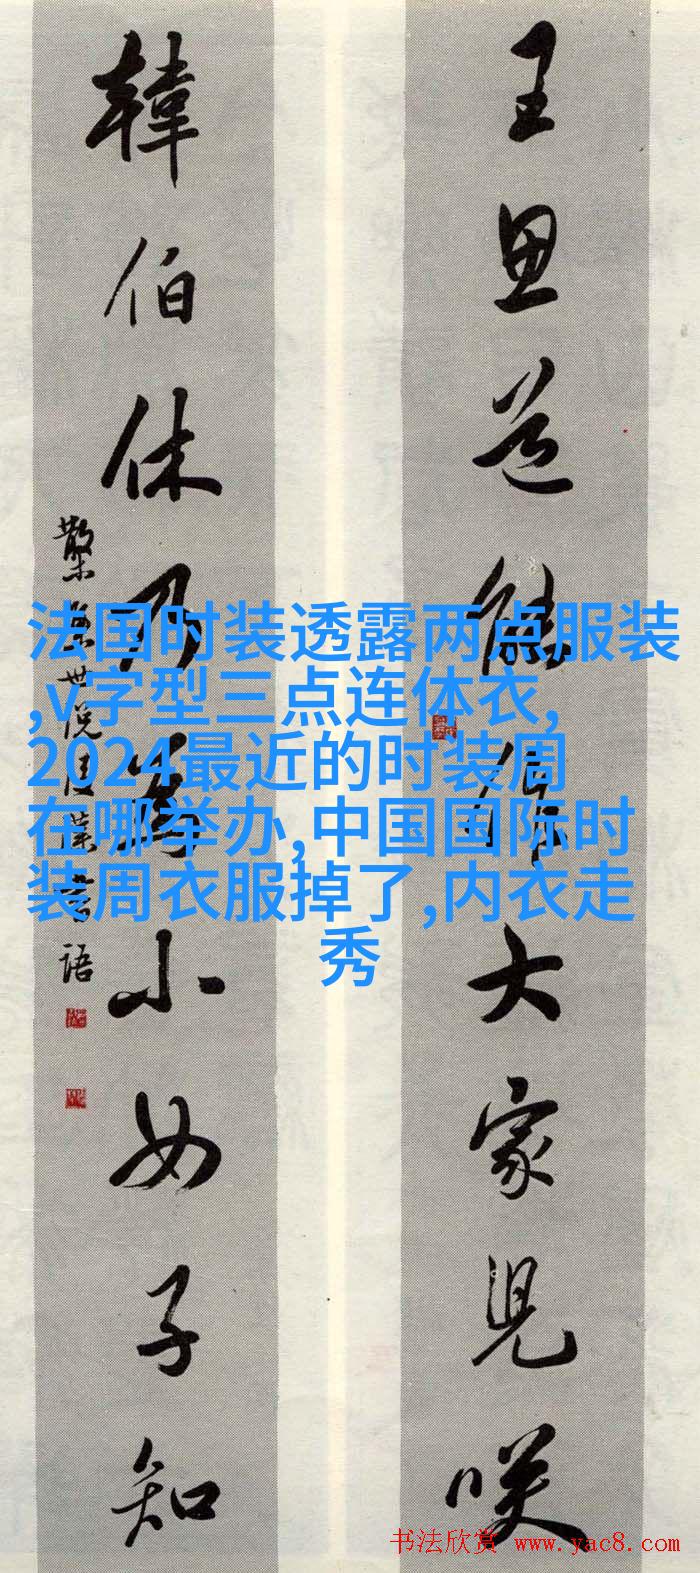 王思道能作大家兒咲
韓伯休乃為小女子知
法国时装透露两点服装
,v字型三点连体衣,
2024最近的时装周
在哪举办,中国国际时
装周衣服掉了,内衣走
秀
书法欣赏 www.yac8.com